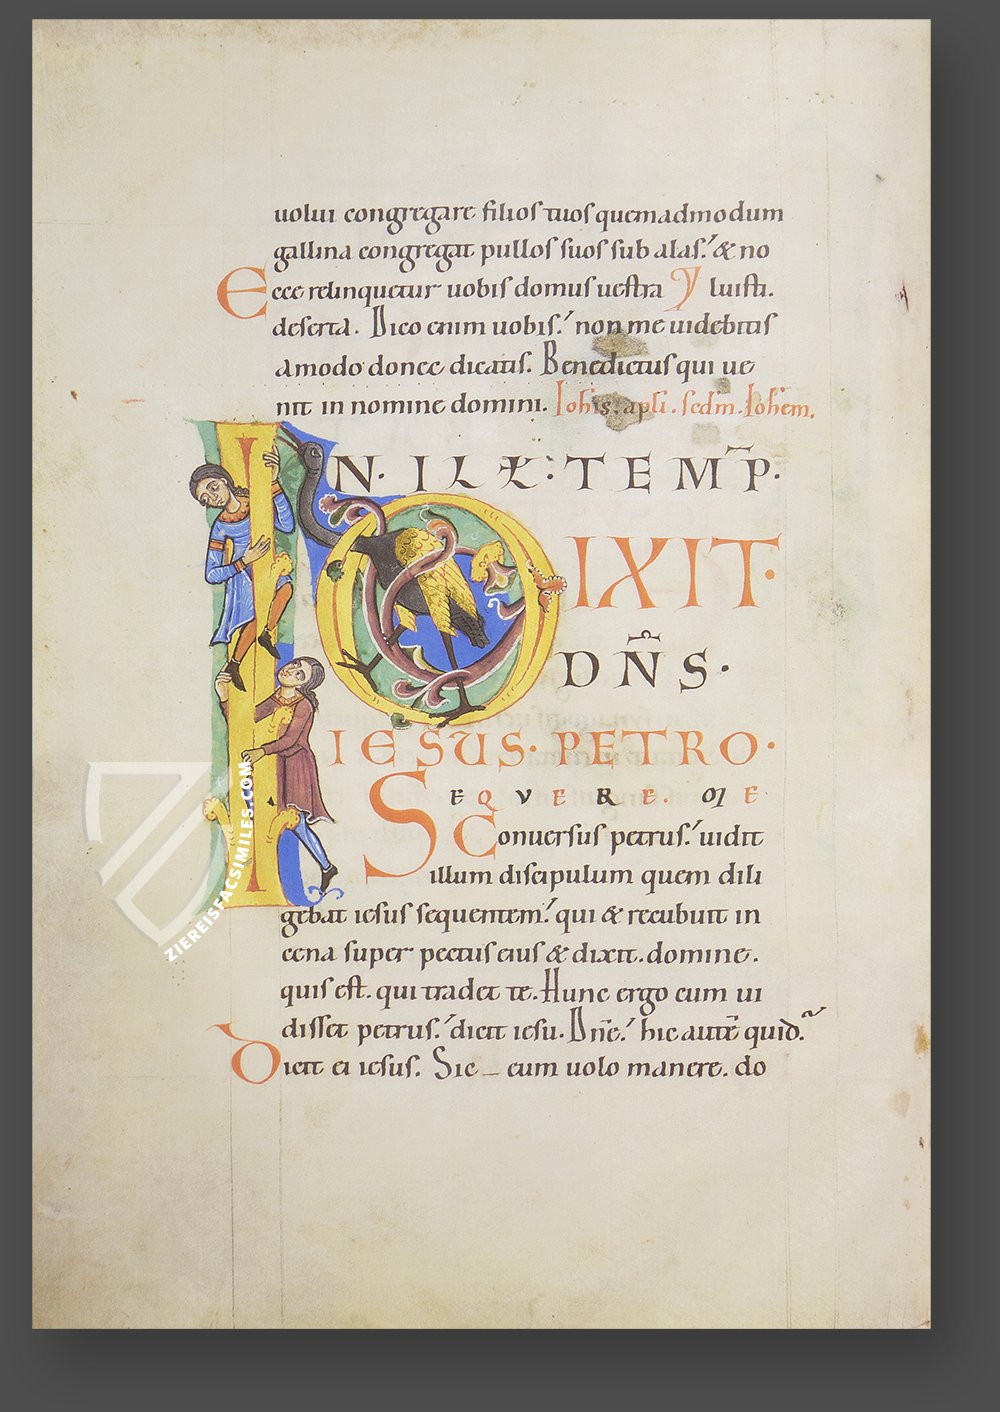 uolui congregare filios tuos quemadmodum
gallina congregat pullos suos sub alas. & no
Ecce relinquetur uobis domus uestra y luisti.
deserta. Dico enim uobis. non me uidebitis
amodo donec dicatis. Benedictus qui ue
nit in nomine domini. Iohis. apli. scdm. Iohem.
IN. ILL: TEMP̄.
DIXIT.
DN̄S.
IESUS. PETRO.
SEQVERE. ME
Conuersus petrus. uidit
illum discipulum quem dili
gebat iesus sequentem. qui & recubuit in
cena super pectus eius & dixit. domine.
quis est. qui tradet te. Hunc ergo cum ui
disset petrus. dicit iesu. Dn̄e. hic autē quid.
Dicit ei iesus. Sic _ eum uolo manere. do
ZIEREISFACSIMILES.COM